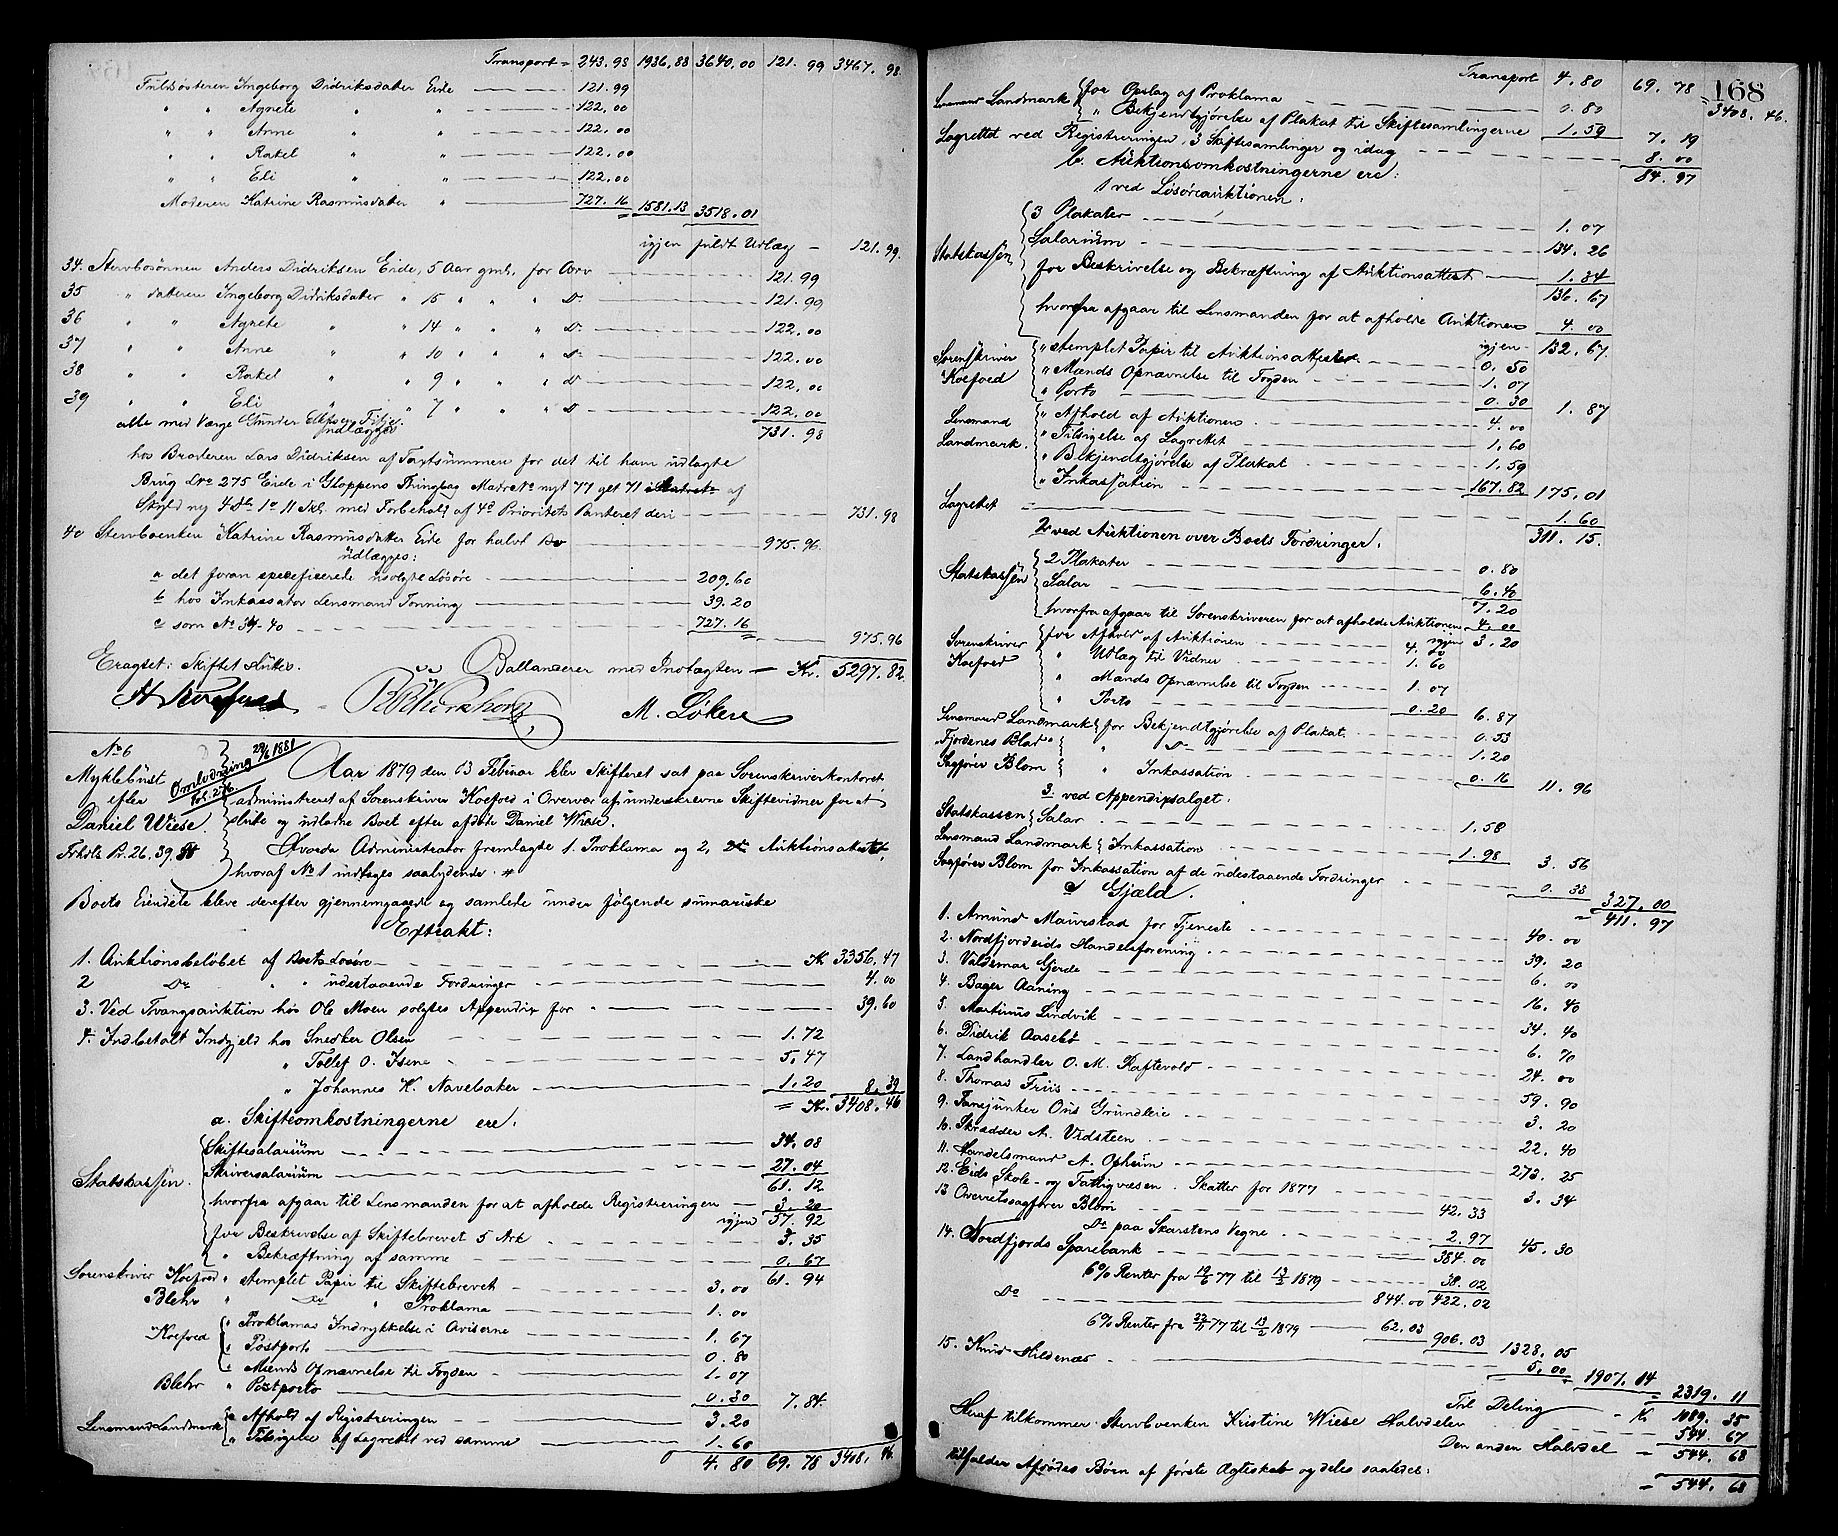 Transport = 243.98 1936.88 3640.00 121.99 3467.98
Fuldsösteren Ingeborg Didriksdatter Eide 121.99
" " Agnete " " 122.00
" " Anne " " 122.00
" " Rakel " " 122.00
" " Eli " " 122.00
Moderen Katrine Rasmusdatter " 727.16 1581.13 3518.01
igjen fuldt Udlæg — 121.99
34. Stervbosönnen Anders Didriksen Eide, 5 Aar gml. for Arv 121.99
35 " datteren Ingeborg Didriksdatter " 15 " " " Do 121.99
36 " " Agnete " " 14 " " " Do 122.00
37 " " Anne " " 10 " " " Do 122.00
38 " " Rakel " " 9 " " " Do 122.00
39 " " Eli " " 7 " " " Do 122.00
alle med Værge Gunder
udlægges 731.98
hos Broderen Lars Didriksen af Taxtsummen for det til ham udlagte
Brug Lno 275 Eide i Gloppens Thinglag Matr No nyt 77 gl 71 af
Skyld ny 4 Dlr 1 o 11 Skl. med Forbehold af 4de Prioritets Panteret deri 731.98
40 Stervboenken Katrine Rasmusdatter Eide for halvt Bo 975.96
udlægges:
a det foran specificerede usolgte Løsøre 209.60
b hos Inkassator Lensmand Tonning 39.20
c som No 34-40 727.16 975.96
Ballancerer med Indtægten — Kr. 5297.82
Eragtet: Skiftet sluttet.
M. Løken
No 6
Myklebust
efter
Daniel Wiese.
Omlodning 29/6 1881
Fol. 276
Aar 1879 den 13 Februar blev Skifteret sat paa Sorenskriverkontoret
administreret af Sorenskriver Koefoed i Overvær af underskrevne Skiftevidner for at
slutte og udlodne Boet efter afdøde Daniel Wiese.
Hvorda Administrator fremlagte 1. Proklama og 2, Auktionsattest,
hvoraf No 1 indtages saalydende: #
Boets Eiendele bleve derefter gjennemgaaede og samlede under følgende sumariske
Extrakt:
1. Auktionsbeløbet af Boets Løsøre Kr 3356.47
2 Do " " udestaaende Fordringer 4.00
3. Ved Tvangsauktion hos Ole Moen solgtes Appendix for 39.60
4. Indbetalt Indgjeld hos Snedker Olsen 1.72
" Tollef O. Isene 5.47
" Johannes K. Navelsaker 1.20 8.39
= Kr. 3408.46
a. Skifteomkostningerne ere:
Statskassen.
Skiftesalarium 34.08
Skriversalarium 27.04
61.12
hvorfra afgaar til Lensmanden for at afholde Registreringen 3.20
igjen 57.92
for Beskrivelse af Skiftebrevet 5 Ark 3.35
" Bekræftning af samme 0.67
61.94
Sorenskriver Koefoed " stemplet Papir til Skiftebrevet 3.00
Blehr " Do " Proklama 1.00
Koefoed " Proklamas Indrykkelse i Aviserne 1.67
" Postporto 0.80
" Mænds Opnævnelse til Fogden 1.07
Blehr " Postporto 0.30 7.84
Lensmand Landmark " Afhold af Registreringen 3.20
" Tilsigelse af Lagrettet ved samme 1.60
4.80 69.78 3408.46
168
Transport 4.80 69.78 = 3408.46.
Lensmand Landmark for Opslag af Proklama 0.80
" Bekjendtgjørelse af Plakat til Skiftesamlingerne 1.59 7.19
Lagrettet ved Registreringen, 3 Skiftesamlinger og idag 8.00
84.97
b. Auktionsomkostningerne ere:
1 ved Løsøreauktionen:
Statskassen
3 Plakater 1.07
Salarium 134.26
for Beskrivelse og Bekræftning af Auktionsattest 1.34
136.67
hvorfra afgaar til Lensmanden for at afholde Auktionen 4.00
igjen 132.67
Sorenskriver Koefoed
" stemplet Papir til Auktionsattesten 0.50
" Mænds Opnævnelse til Fogden 1.07
" Porto 0.30 1.87
Lensmand Landmark.
" Afhold af Auktionen 4.00
" Tilsigelse af Lagrettet 1.60
" Bekjendtgjørelse af Plakat 1.59
" Inkassation 167.82 175.01
Lagrettet 1.60
311.15.
2. ved Auktionen over Boets Fordringer.
Statskassen
2 Plakater 0.80
Salar 6.40
7.20
hvorfra afgaar til Sorenskriveren for at afholde Auktionen 4.00
igjen 3.20
Sorenskriver Koefoed
for Afhold af Auktionen 4.00
" Udlæg til Vidner 1.60
" Mænds Opnævnelse til Fogden 1.07
" Porto 0.20 6.87
Lensmand Landmark for Bekjendtgjørelse af Plakat 0.53
"Fjordenes Blad" " Do 1.20
Sagfører Blom " Inkassation 0.16 11.96
3. ved Appendixsalget.
Statskassen Salar 1.58
Lensmand Landmark Inkassation 1.98 3.56
Sagfører Blom for Inkassation af de udestaaende Fordringer 0.38
327.00
= 411.97
c Gjæld.
1. Amund Maurstad for Tjeneste 40.00
2. Nordfjordeids Handelsforening 39.20
3. Valdemar Gjerde 6.00
4. Bager Aaning 16.40
5. Martinus Lindvik 34.40
6. Didrik Aasebø 6.70
7. Landhandler O. M. Raftevold 24.00
8. Thomas Friis 59.90
9. Fanejunker Ous Grundleie 3.20
10. Skrædder A. Vedsteen 22.40
11. Handelsmand A. Opheim 273.25
12. Eids Skole- og Fattigvæsen. Skatter for 1877 3.34
13 Overretssagfører Blom 42.33
Do paa Skarstens Vegne 2.97 45.30
14. Nordfjords Sparebank 384.00
6% Renter fra 19/6 77 til 13/2 1879 38.02
Do 844.00 422.02
6% Renter fra 22/11 77 til 13/2 1879 62.03 906.03 1328.05
15. Knud Hildenæs 5.00
1907.14
= 2319.11
Til Deling Kr 1089.35
Heraf tilkommer Stervboenken Kristine Wiese Halvdelen 544.67
Den anden Halvdel 544.68
tilfalder Afdødes Børn af første Ægteskab og deles saaledes:
544.68